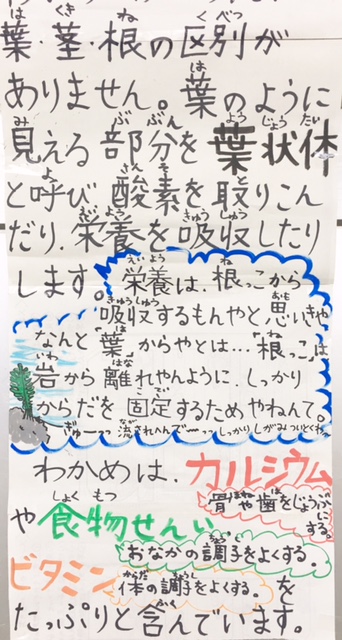 葉・茎・根の区別が
ありません。葉のように
見える部分を葉状体
と呼び、酸素を取りこん
だり、栄養を吸収したり
します。
栄養は、根っこから
吸収するもんやと思いきや
なんと「葉」からやとは…「根っこ」は
岩から離れやんように、しっかり
からだを固定するためやねんて。
ぎゅーっっ 流されへんでーっっしっかりしがみついとくわ
わかめは、カルシウム
骨や歯をじょうぶに
する。
や食物せんい
おなかの調子をよくする。
ビタミン 体の調子をよくする。を
たっぷりと含んでいます。